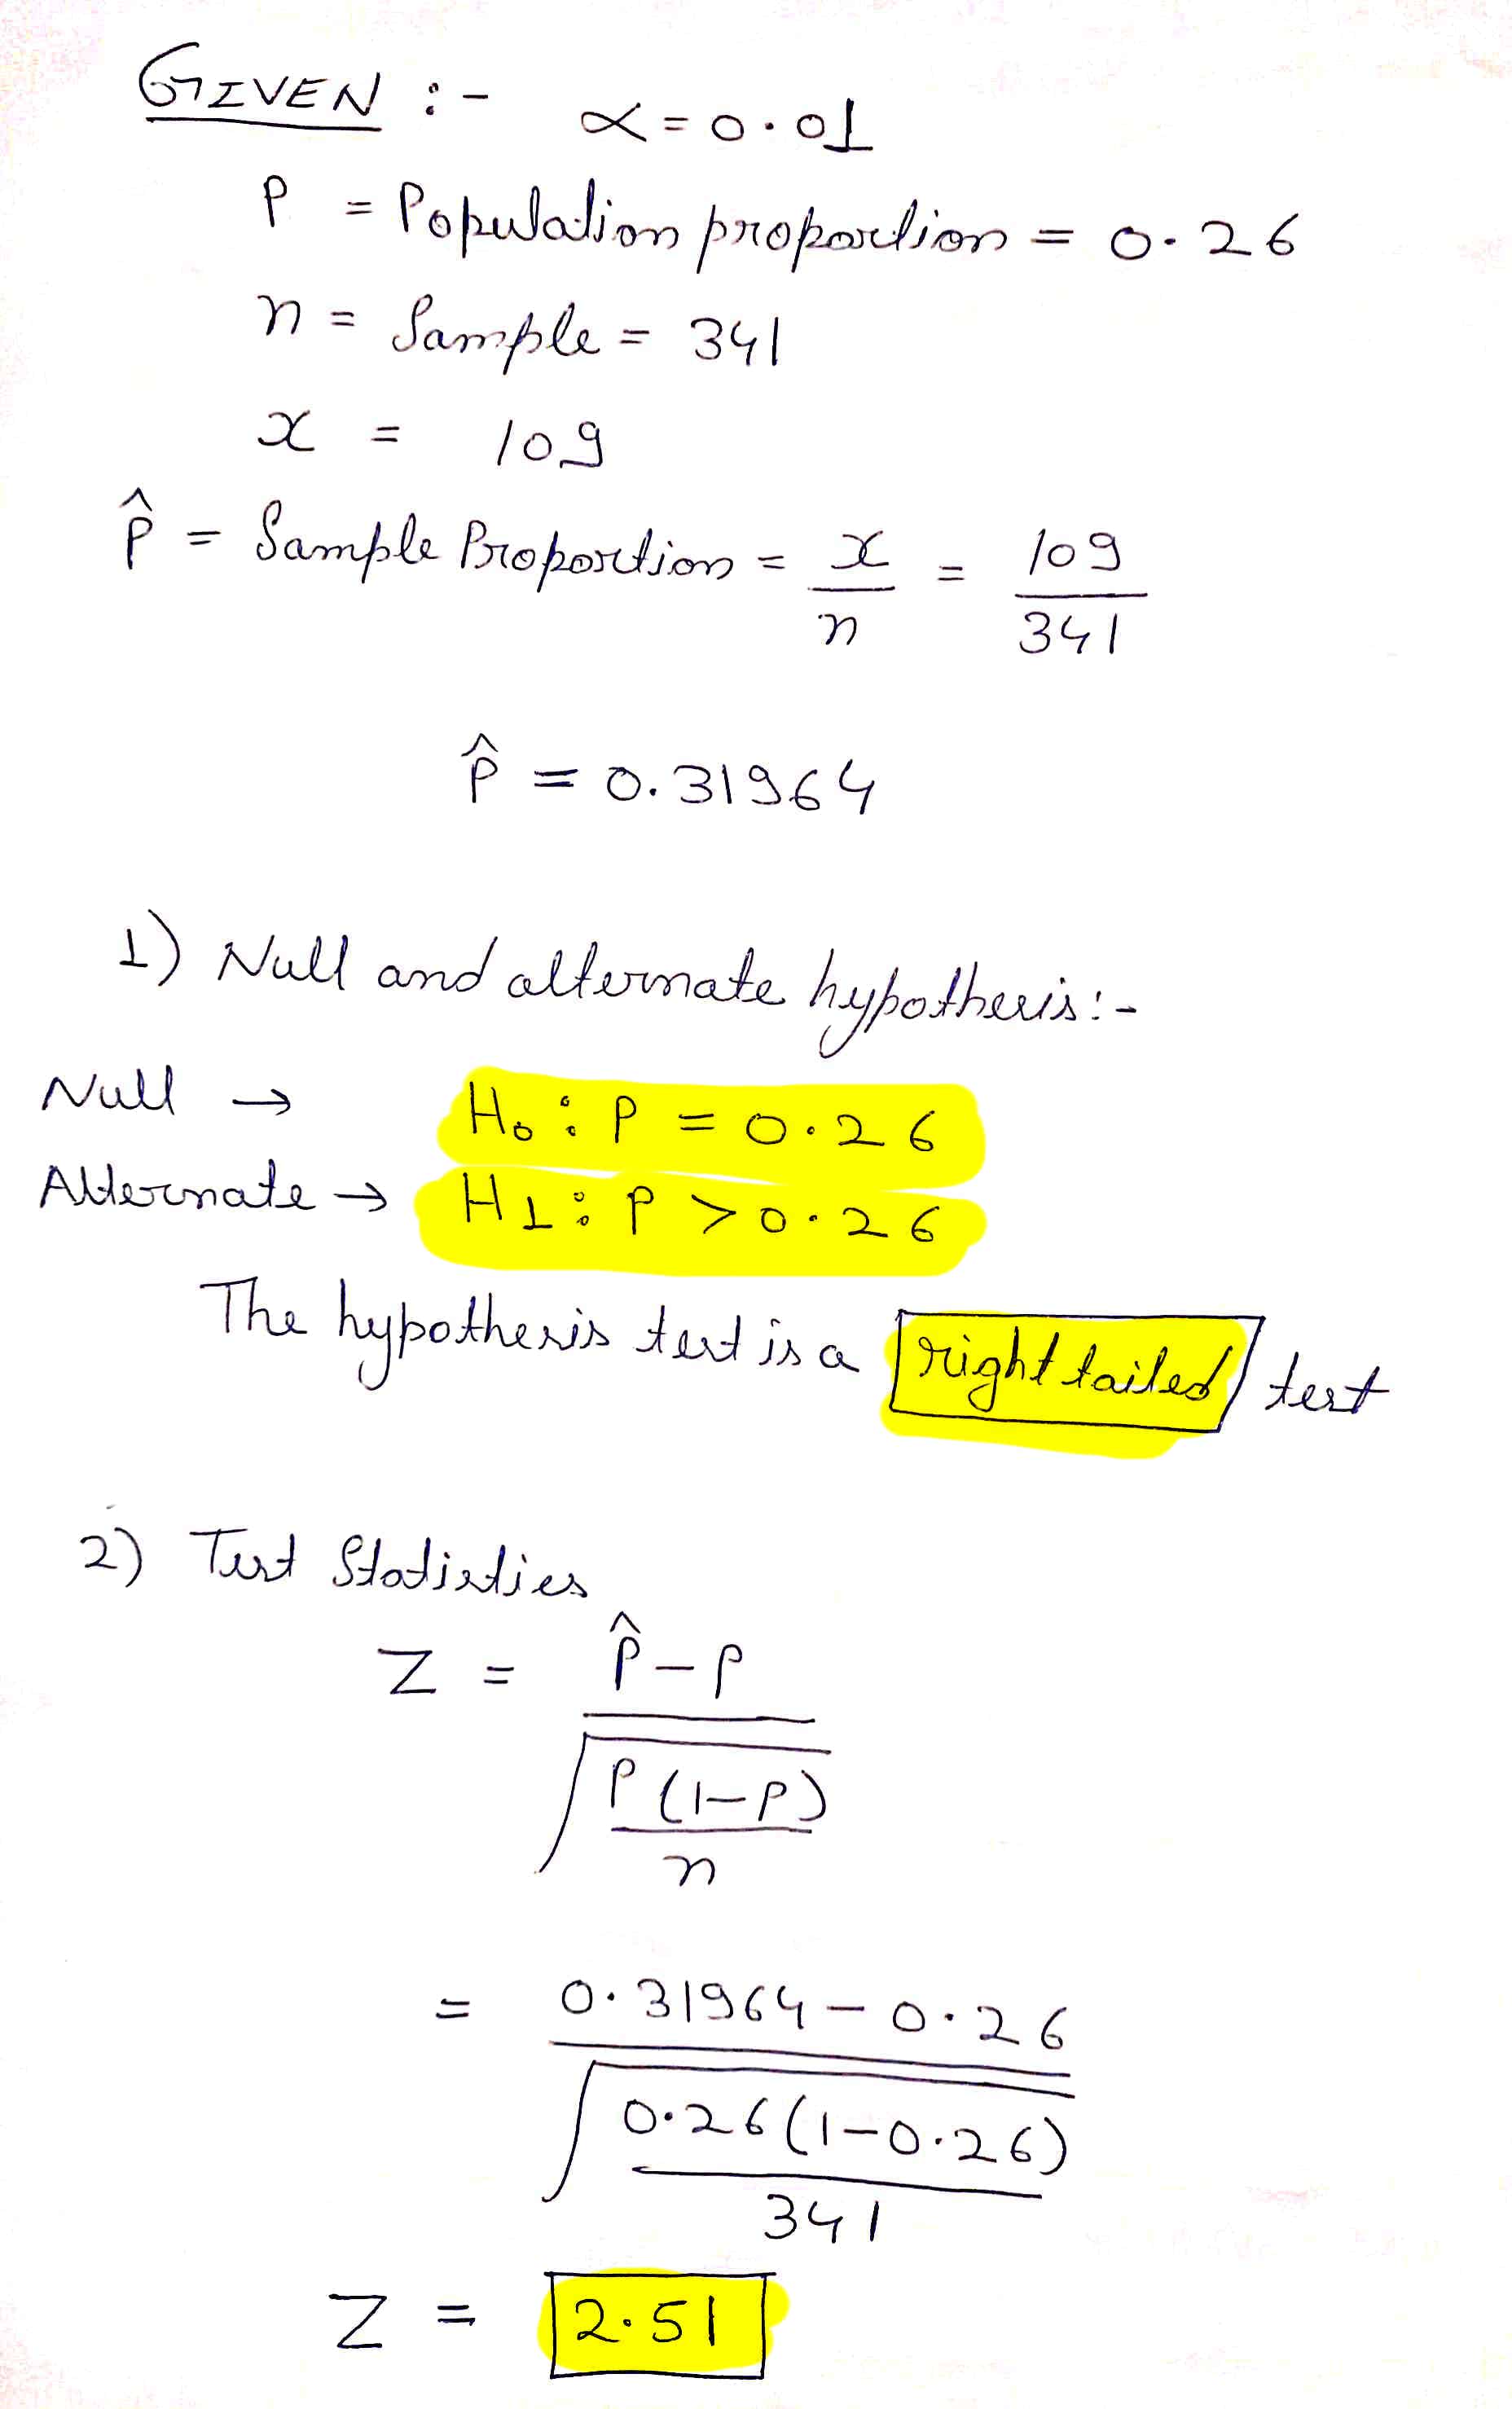 GIVEN :- α = 0.01
P = Population proportion = 0.26
n = Sample = 341
x = 109
p̂ = Sample Proportion = x/n = 109/341
p̂ = 0.31964
1) Null and alternate hypothesis:-
Null → H₀ : P = 0.26
Alternate → H1 : P > 0.26
The hypothesis test is a right tailed test
2) Test Statistics
Z = p̂ - p / √(P(1-P)/n)
= 0.31964 - 0.26 / √(0.26(1-0.26)/341)
Z = 2.51